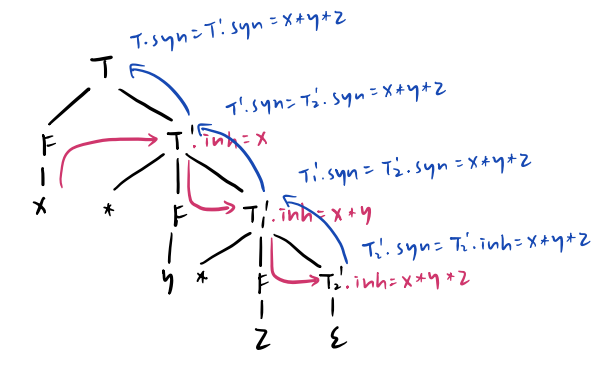 T.syn=T'.syn=x*y*z
T
T'.syn=T₂'.syn=x*y*z
F
T'.inh=x
T₁'.syn=T₂'.syn=x*y*z
x
*
F
T₁'.inh=x*y
T₂'.syn=T₂'.inh=x*y*z
y
*
F
T₂'.inh=x*y*z
z
ε